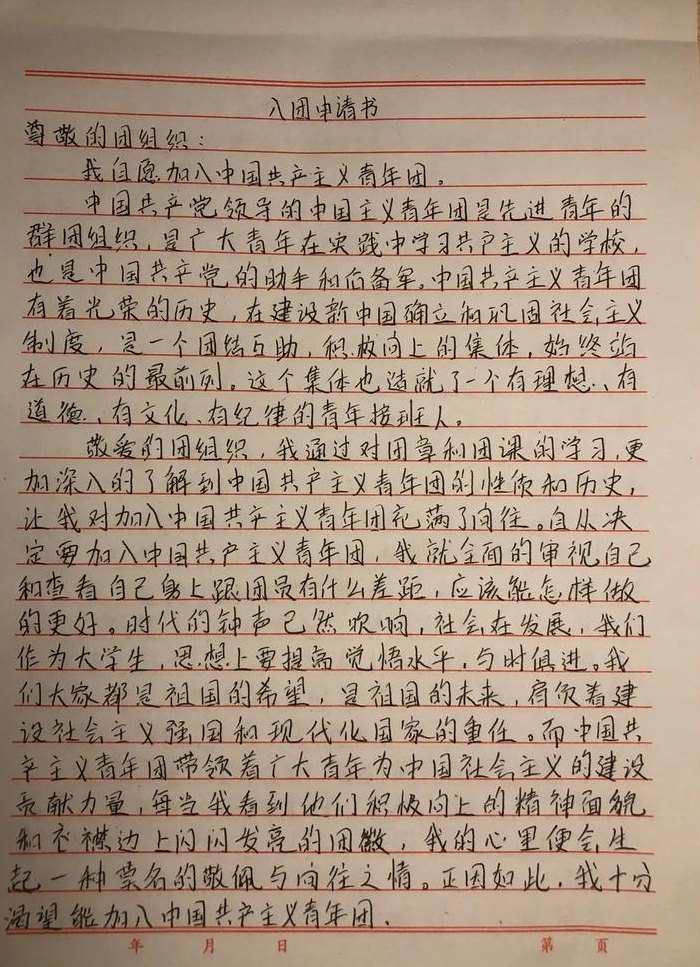 入团申请书
尊敬的团组织：
我自愿加入中国共产主义青年团。
中国共产党领导的中国主义青年团是先进青年的
群团组织，是广大青年在实践中学习共产主义的学校，
也是中国共产党的助手和后备军。中国共产主义青年团
有着光荣的历史，在建设新中国确立和巩固社会主义
制度，是一个团结互助，积极向上的集体，始终站
在历史的最前列。这个集体也造就了一个有理想、有
道德、有文化、有纪律的青年接班人。
敬爱的团组织，我通过对团章和团课的学习，更
加深入的了解到中国共产主义青年团的性质和历史，
让我对加入中国共产主义青年团充满了向往。自从决
定要加入中国共产主义青年团，我就全面的审视自己
和查看自己身上跟团员有什么差距，应该能怎样做
的更好。时代的钟声已然吹响，社会在发展，我们
作为大学生，思想上要提高觉悟水平，与时俱进。我
们大家都是祖国的希望，是祖国的未来，肩负着建
设社会主义强国和现代化国家的重任。而中国共
产主义青年团带领着广大青年为中国社会主义的建设
贡献力量，每当我看到他们积极向上的精神面貌
和衣襟边上闪闪发亮的团徽，我的心里便会生
起一种票名的敬佩与向往之情。正因如此，我十分
渴望能加入中国共产主义青年团．
年 月 日 第 页